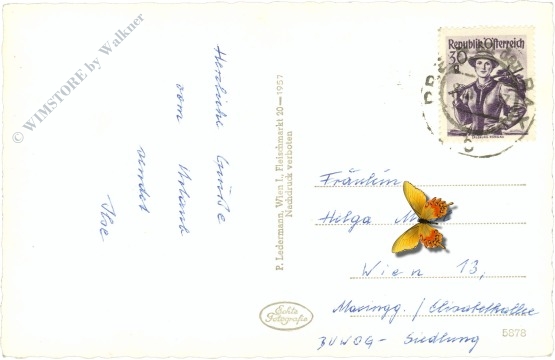 © WIMSTORE by Walkner
Herzliche Grüße
vom Urlaub
sendet
Ilse
P. Ledermann, Wien I., Fleischmarkt 20—1957
Nachdruck verboten
Echte
Fotografie
Republik Österreich
30
Fräulein
Helga
Wien 13,
/ Elisabethallee
BUWOG - Siedlung
5878